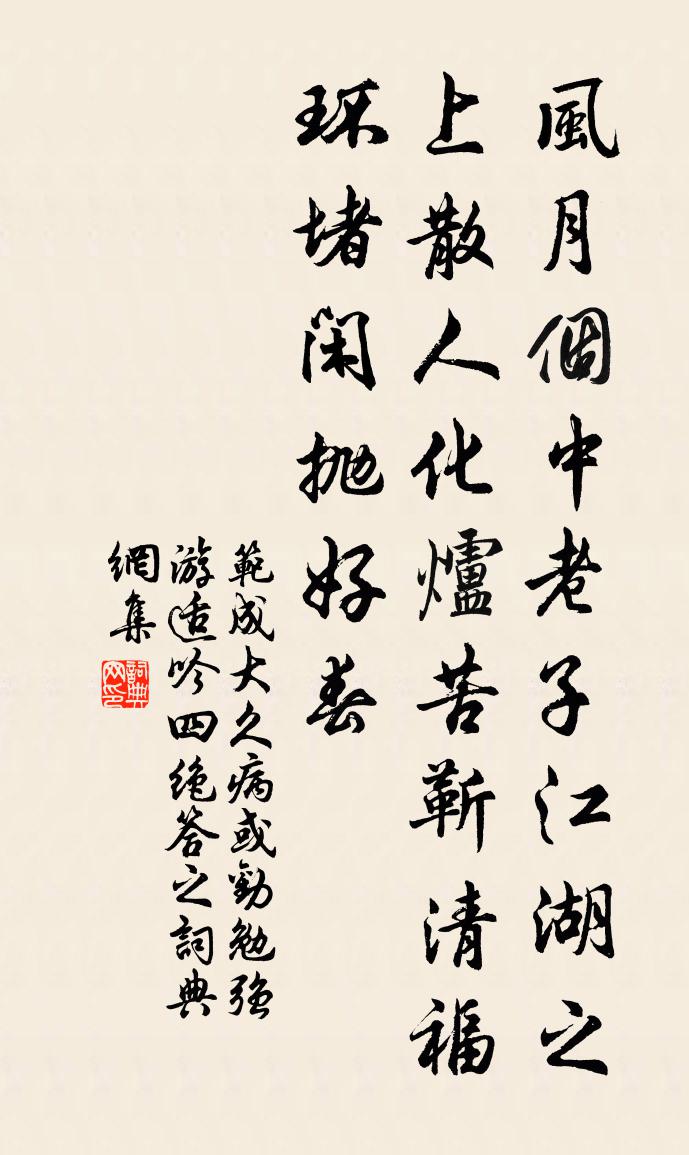 風月個中老子江湖之
上散人化爐苦靳清福
環堵閑拋好春
範成大久病或勸勉強
游适吟四絶答之詞典
網集
詞典
网印